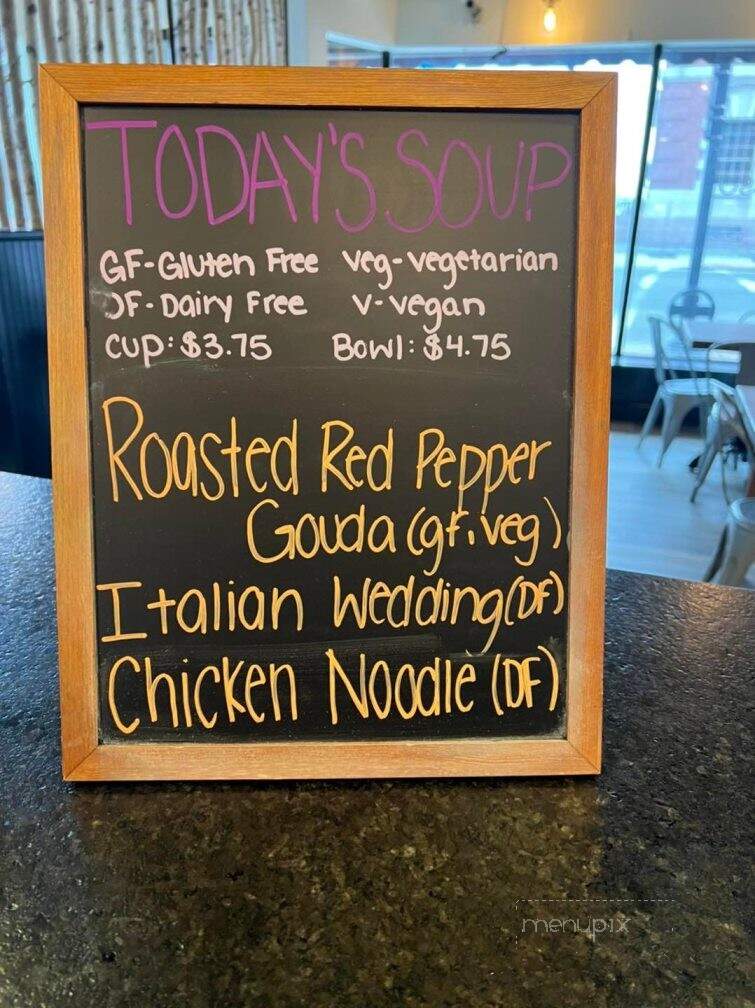 TODAY'S SOUP
GF-Gluten Free Veg-vegetarian
DF-Dairy Free V-vegan
Cup: $3.75 Bowl: $4.75
Roasted Red Pepper
Gouda (gf, veg)
Italian Wedding (DF)
Chicken Noodle (DF)
menupix